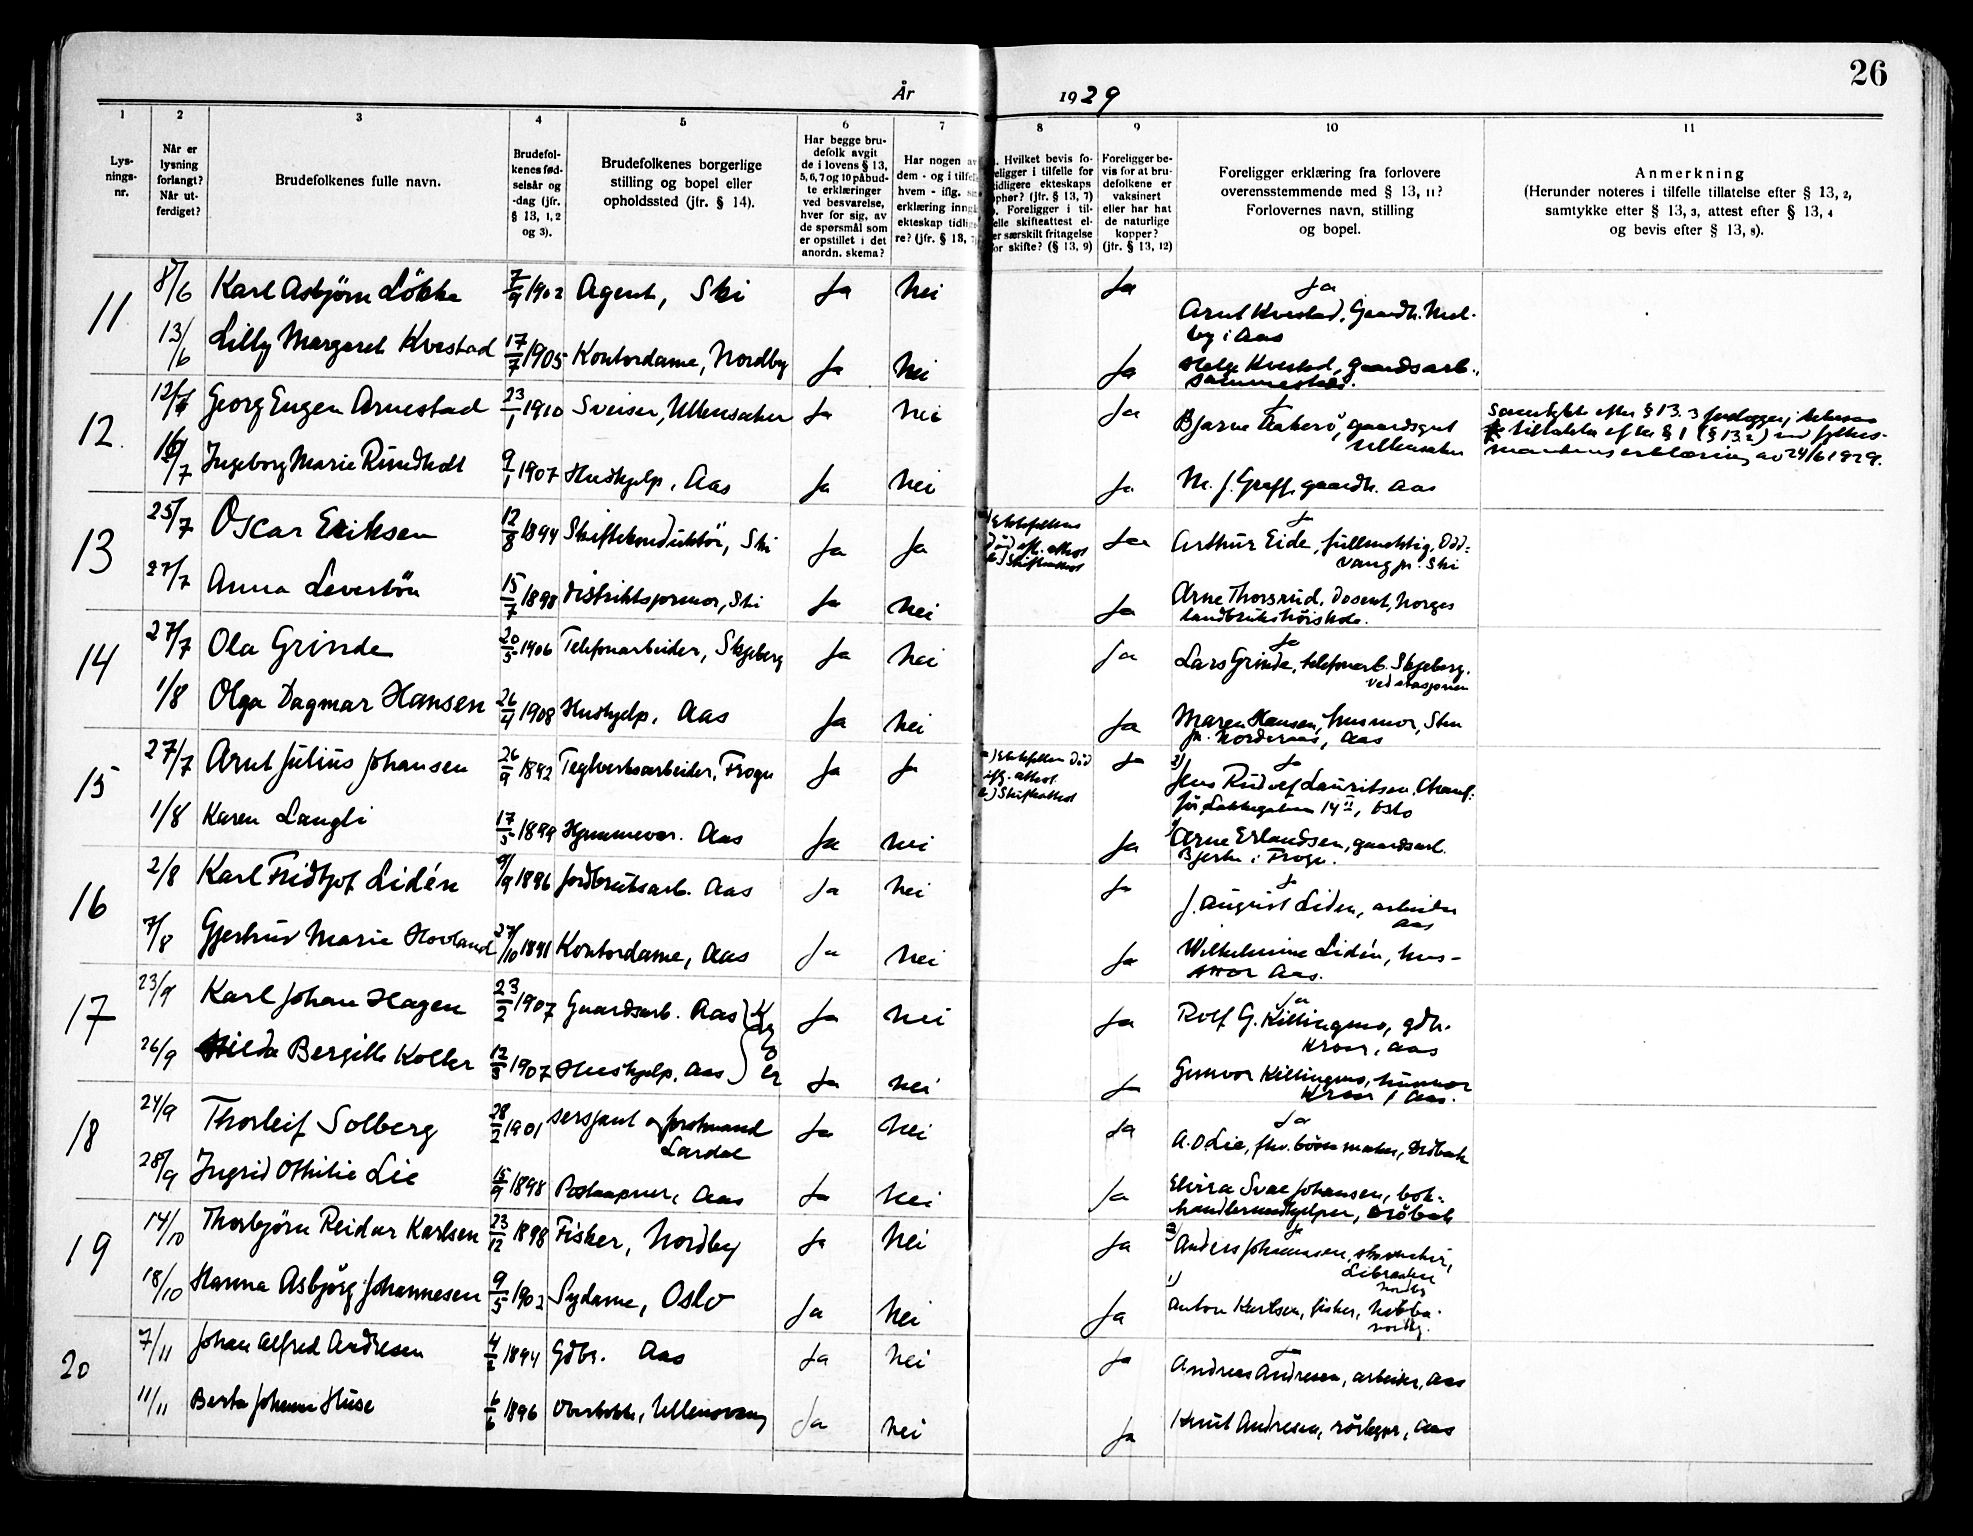 26
År 1929
1 2 3 4 5 6 7 8 9 10 11
Lys-
nings-
nr.
Når er
lysning
forlangt?
Når ut-
ferdiget?
Brudefolkenes fulle navn.
Brudefol-
kenes fød-
selsår og
-dag (jfr.
§ 13, 1, 2
og 3).
Brudefolkenes borgerlige
stilling og bopel eller
opholdssted (jfr. § 14).
Har begge bru-
defolk avgit
de i lovens § 13,
5, 6, 7 og 10 påbud-
te erklæringer
ved besvarelse,
hver for sig, av
de spørsmål som
er opstillet i det
anordn. skema?
Har nogen av
dem - og i tilfelle
hvem - iflg. sin
erklæring inngått
ekteskap tidlige-
re? (jfr. § 13, 7)
Hvilket bevis fo-
religger i tilfelle for
tidligere ekteskaps
ophør? (jfr. § 13, 7)
Foreligger i til-
felle skifteattest el-
ler særskilt fritagelse
for skifte? (§ 13, 9)
Foreligger be-
vis for at bru-
defolkene er
vaksinert
eller har hat
de naturlige
kopper?
(jfr. § 13, 12)
Foreligger erklæring fra forlovere
overensstemmende med § 13, 11?
Forlovernes navn, stilling
og bopel.
Anmerkning
(Herunder noteres i tilfelle tillatelse efter § 13, 2,
samtykke efter § 13, 3, attest efter § 13, 4
og bevis efter § 13, 8).
11 8/6 Karl Asbjørn Løkke 7/9 1902 Agent, Ski Ja Nei Ja Ja
Arnt Kvestad, Gaardbr. Nord-
by i Aas
13/6 Lilly Margaret Kvestad 17/7 1905 Kontordame, Nordby Ja Nei Ja Helge Kvestad, gaardsarb.,
sammesteds.
12. Georg Eugen Arnestad 23/1 1910 Sveiser, Ullensaker Ja Nei Ja Ja
Bjarne Aakerø, gaardsgut
Ullensaker
Samtykke efter § 13. 3 foreligger;
tillatelse efter § 1 (§ 13 2) ved fylkes-
mandens erklæring av 24/6 1929.
Ingeborg Marie Rundholt 9/1 1907 Hushjelp, Aas Ja Nei Ja M. J. Graff, gaardbr. Aas
13 25/7 Oscar Eriksen 12/8 1894 Skiftekonduktør, Ski Ja Ja Ektefellens
død ifl. attest
b.) Skifteattest
Ja Ja
Arthur Eide, fullmektig, Odd-
vang pr. Ski
27/7 Anna Leverbön 15/7 1898 Distriktsjormor, Ski Ja Nei Ja Arne Thorsrud, Dosent, Norges
landbrukshøiskole.
14 27/7 Ola Grinde 20/5 1906 Telefonarbeider, Skjeberg Ja Nei Ja Ja
Lars Grinde, telefonarb. Skjeberg
ved stasjonen
1/8 Olga Dagmar Hansen 26/4 1908 Hushjelp, Aas Ja Nei Ja Maren Hansen, husmor,
pr. Norderaas, Aas
15 27/7 Arnt Julius Johansen 26/9 1892 Teglverksarbeider, Frogn Ja Ja a) Ektefellen død
iflg. attest
b) Skifteattest
Ja 2) Ja
Jens Rudolf Lauritsen, Chauf-
för, Lakkegaten 14 II, Oslo
1/8 Karen Langli 17/5 1899 Hjemmevær. Aas Ja Nei Ja 1) Arne Erlandsen, gaardsarb.
Bjerke i Frogn.
16 2/8 Karl Fridtjof Lidén 9/9 1896 Jordbruksarb. Aas Ja Nei Ja Ja
J. August Liden, arbeider
Aas
7/8 Gjertrud Marie Hovland 27/10 1891 Kontordame, Aas Ja Nei Ja Wilhelmine Lidén, hus-
mor Aas.
17 23/9 Karl Johan Hagen 23/2 1907 Gaardsarb. Aas Ja Nei Ja Ja
Rolf G. Killingmo, gdbr.
Kroer, Aas
26/9 Hilda Bergitte Koller 12/3 1907 Hushjelp, Aas Kroer Ja Nei Ja Gunvor Killingmo, husmor
Kroer, Aas.
18 24/9 Thorleif Solberg 28/2 1901 Sersjant og forstmand
Lardal
Ja Nei Ja Ja
A. O. Lie, fhv. bössemaker, Drøbak
28/9 Ingrid Othilie Lie 15/9 1898 Postaapner, Aas Ja Nei Ja Elvira Svae Johansen, bok-
handlermedhjelper, Drøbak
19 14/10 Thorbjörn Reidar Karlsen 23/12 1898 Fisker, Nordby Ja Nei Ja 2) Ja
Anders Johannesen,
Nordby
18/10 Hanna Asbjørg Johannesen 9/5 1902 Sydame, Oslo Ja Nei Ja 1)
Anton Karlsen, fisker, Nebba
Nordby.
20 7/11 Johan Alfred Andresen 4/2 1894 Gdbr. Aas Ja Nei Ja Ja
Andreas Andresen, arbeider, Aas
11/11 Berta Johanne Huse 6/6 1896 Overkokke, Ullensvang Ja Nei Ja Knut Andresen, rörlegger, Aas